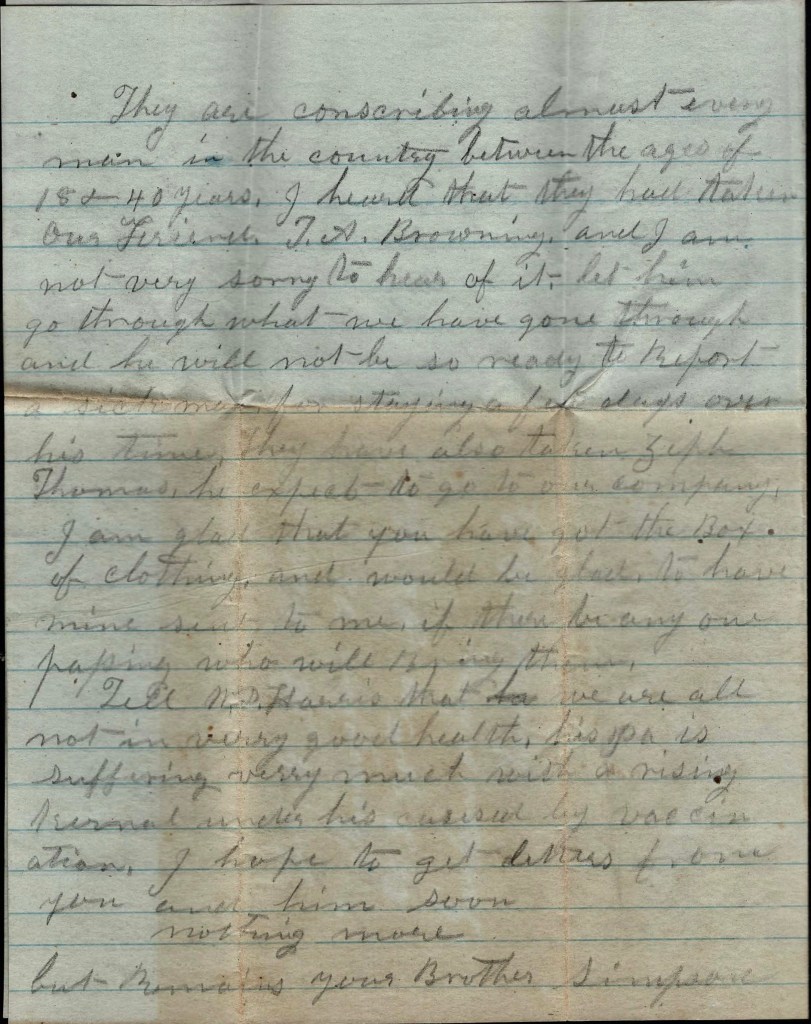 They are conscribing almost every
man in the country between the ages of
18 & 40 years, I heard that they had taken
Our Friend, T. A. Browning, and I am
not very sorry to hear of it, let him
go through what we have gone through
and he will not be so ready to Report
a sick man for staying a few days over
his time, They have also taken Zeph
Thomas, he expect to go to our company,
I am glad that you have got the Box
of clothing, and would be glad, to have
mine sent to me, if there be any one
passing who will Bring them,
Tell N. P. Harris that we are all
not in verry good health, his pa is
suffering verry much with a rising
kernal under his caused by vaccin
ation, I hope to get letters from
you and him soon
nothing more
but Remains your Brother Simpson